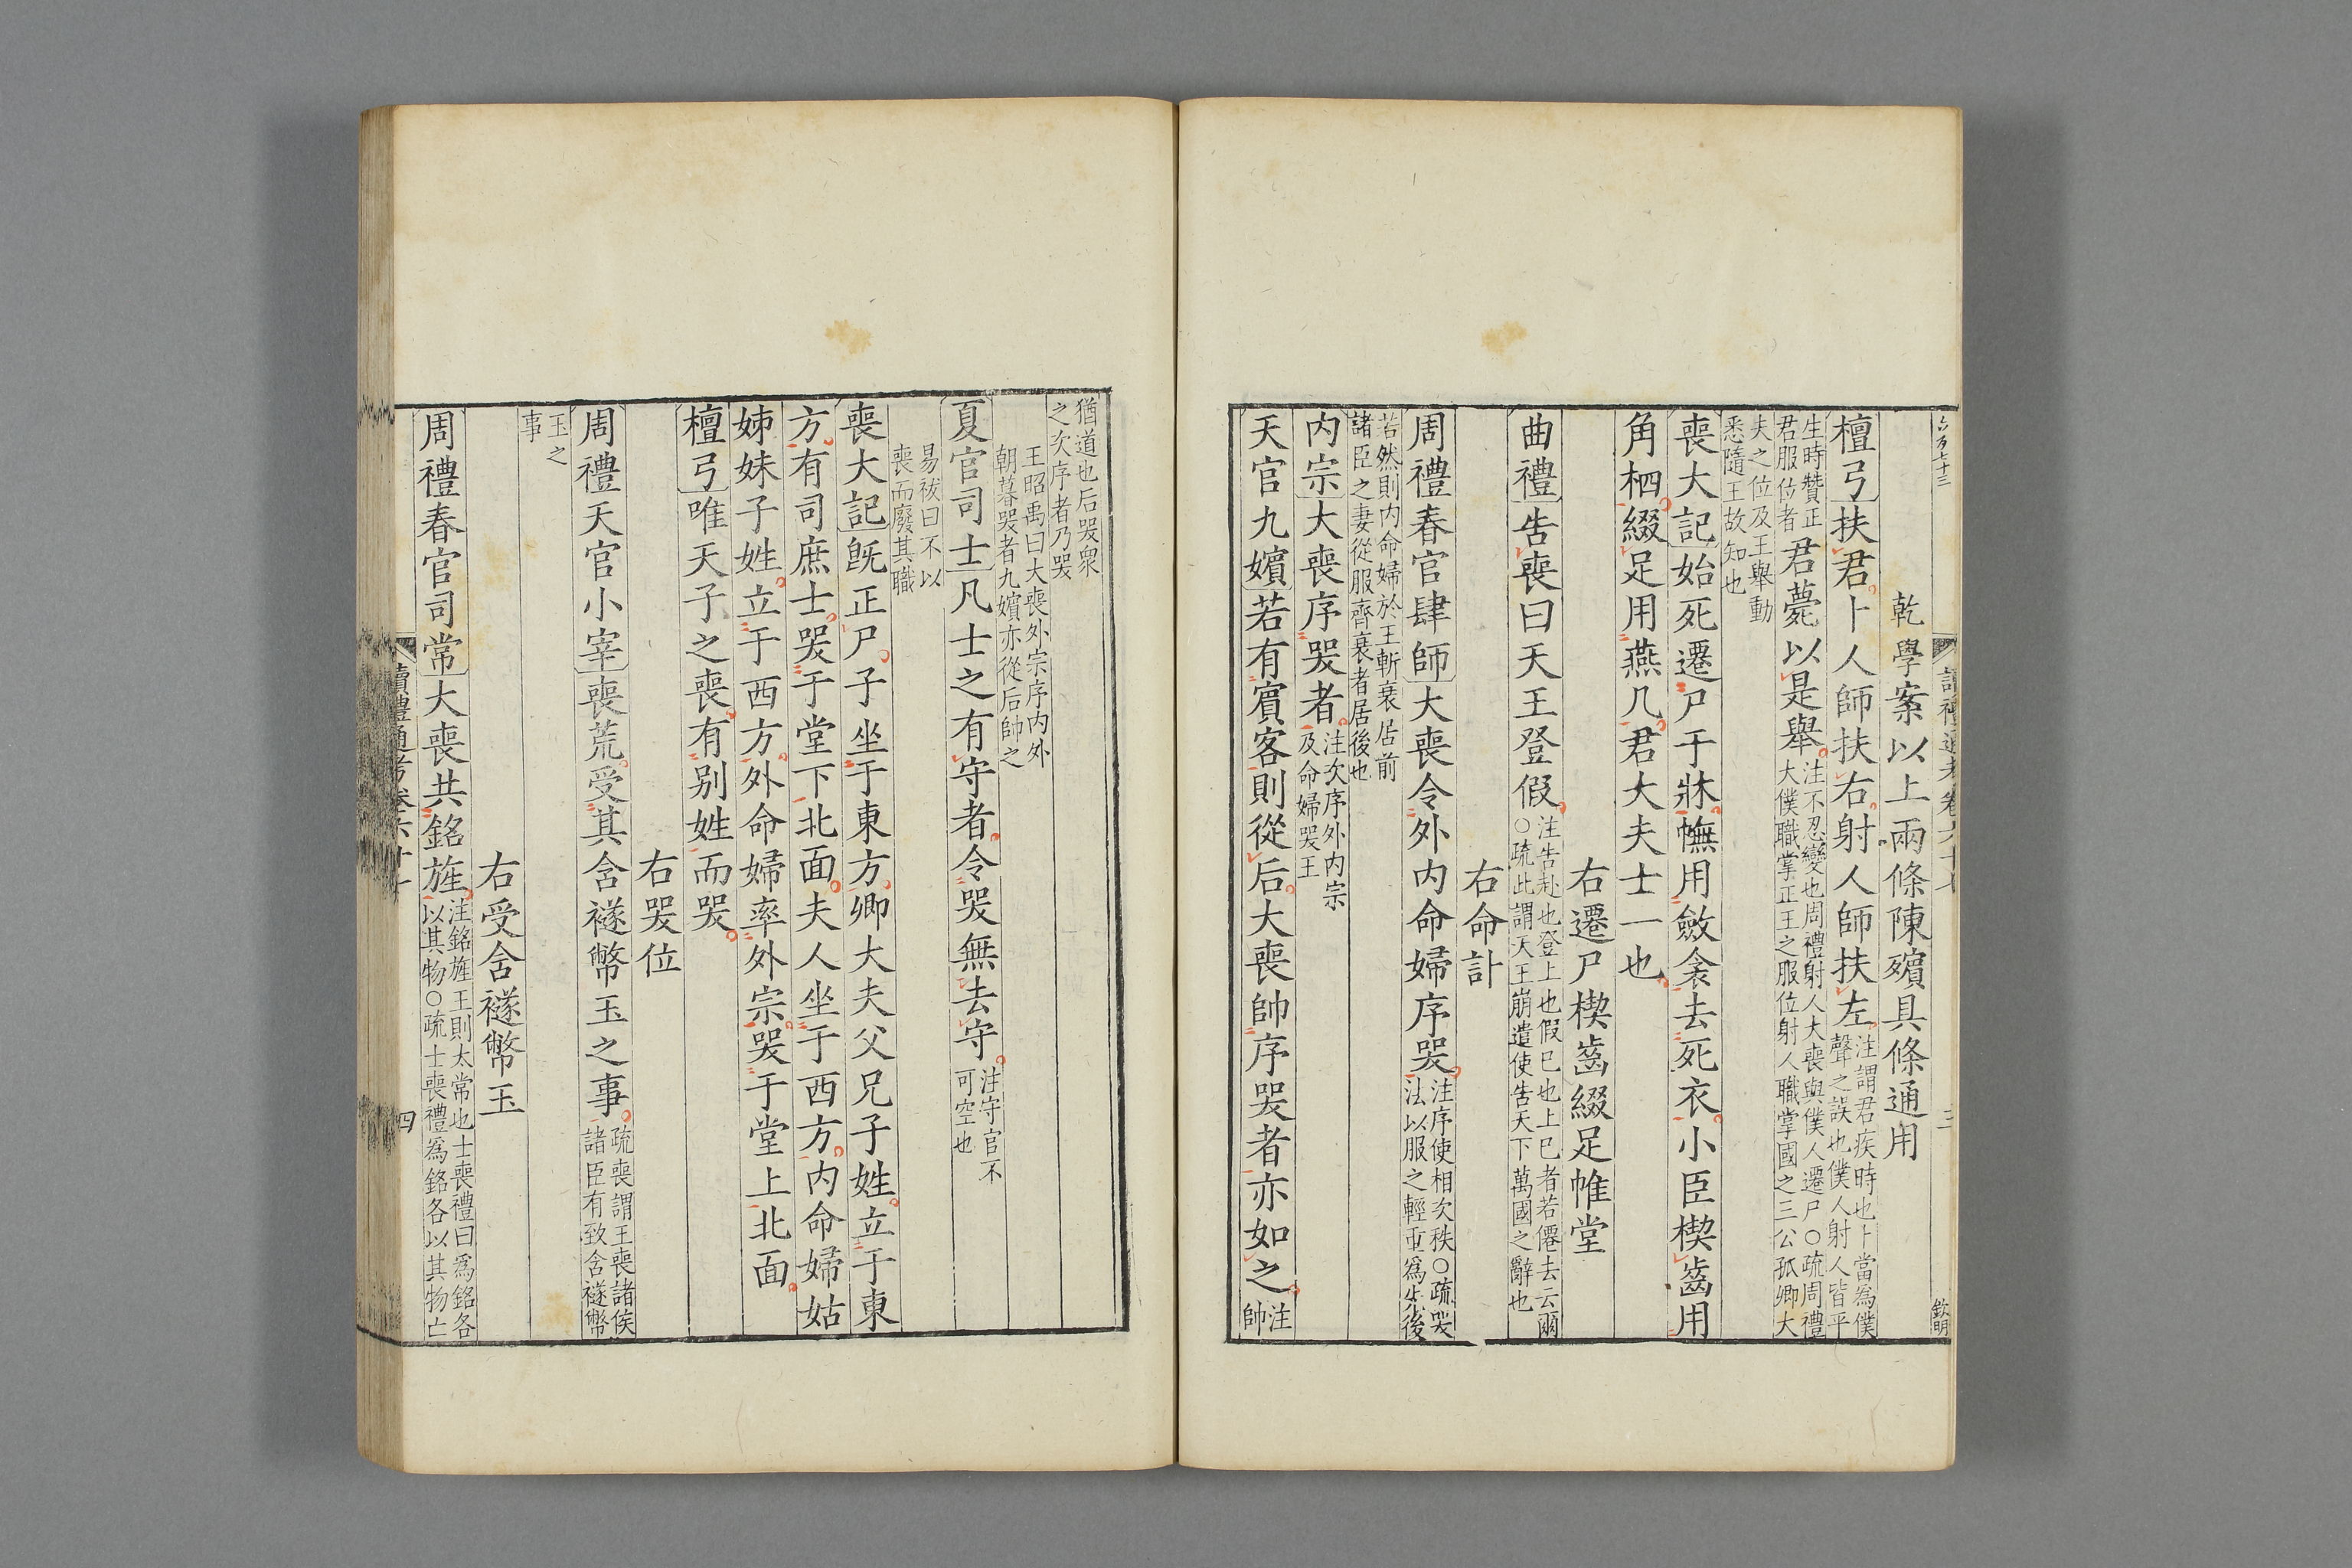 六百七十三
乾學案以上兩條陳殯具條通用
檀弓扶君卜人師扶右射人師扶左注謂君疾時也卜當爲僕
聲之誤也僕人射人皆平
生時贊正
君服位者君薨以是舉注不忍變也周禮射人大喪與僕人遷尸○疏周禮
大僕職掌正王之服位射人職掌國之三公孤卿大
夫之位及王舉動
悉隨王故知也
喪大記始死遷尸于牀幠用斂衾去死衣小臣楔齒用
角柶綴足用燕几君大夫士一也
右遷尸楔齒綴足帷堂
曲禮告喪曰天王登假注告赴也登上也假已也上已者若僊去云爾
○疏此謂天王崩遣使告天下萬國之辭也
右命訃
周禮春官肆師大喪令外内命婦序哭注序使相次秩○疏哭
法以服之輕重爲先後
若然則内命婦於王斬衰居前
諸臣之妻從服齊衰者居後也
内宗大喪序哭者注次序外内宗
及命婦哭王
天官九嬪若有賓客則從后大喪帥序哭者亦如之注
帥
猶道也后哭衆
之次序者乃哭
王昭禹曰大喪外宗序内外
朝暮哭者九嬪亦從后帥之
夏官司士凡士之有守者令哭無去守注守官不
可空也
易祓曰不以
喪而廢其職
喪大記旣正尸子坐于東方卿大夫父兄子姓立于東
方有司庶士哭于堂下北面夫人坐于西方内命婦姑
姊妹子姓立于西方外命婦率外宗哭于堂上北面
檀弓唯天子之喪有別姓而哭
右哭位
周禮天官小宰喪荒受其含襚幣玉之事疏喪謂王喪諸侯
諸臣有致含襚幣
玉之
事
右受含襚幣玉
周禮春官司常大喪共銘旌注銘旌王則太常也士喪禮曰爲銘各
以其物○疏士喪禮爲銘各以其物亡
讀禮通考卷六十
四